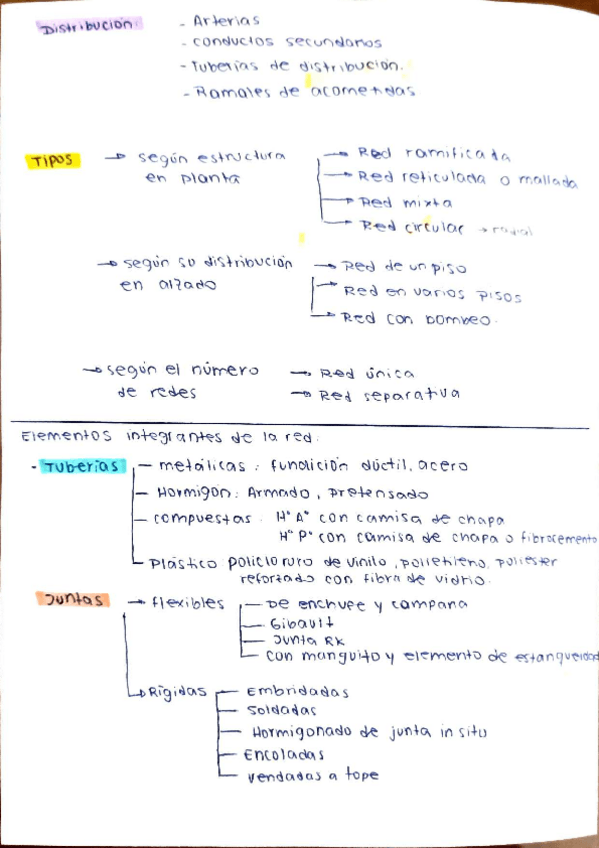 Distribución: - Arterias
- conductos secundarios
- Tuberías de distribución.
- Ramales de acometidas
TIPOS → según estructura → Red ramificada
en planta → Red reticulada o mallada
→ Red mixta
→ Red circular → radial
→ según su distribución → Red de un piso
en alzado → Red en varios pisos
→ Red con bombeo.
→ según el número → Red única
de redes → Red separativa
Elementos integrantes de la red:
- Tuberías — metálicas: fundición dúctil, acero
— Hormigón: Armado, pretensado
— compuestas: HºAº con camisa de chapa
HºPº con camisa de chapa o fibrocemento
— Plástico policloruro de vinilo, polietileno, poliester
reforzado con fibra de vidrio.
Juntas → flexibles — De enchufe y campana
— Gibault
— Junta RK
— con manguito y elemento de estanqueidad
→ Rígidas — Embridadas
— Soldadas
— Hormigonado de junta in situ
— Encoladas
— vendadas a tope